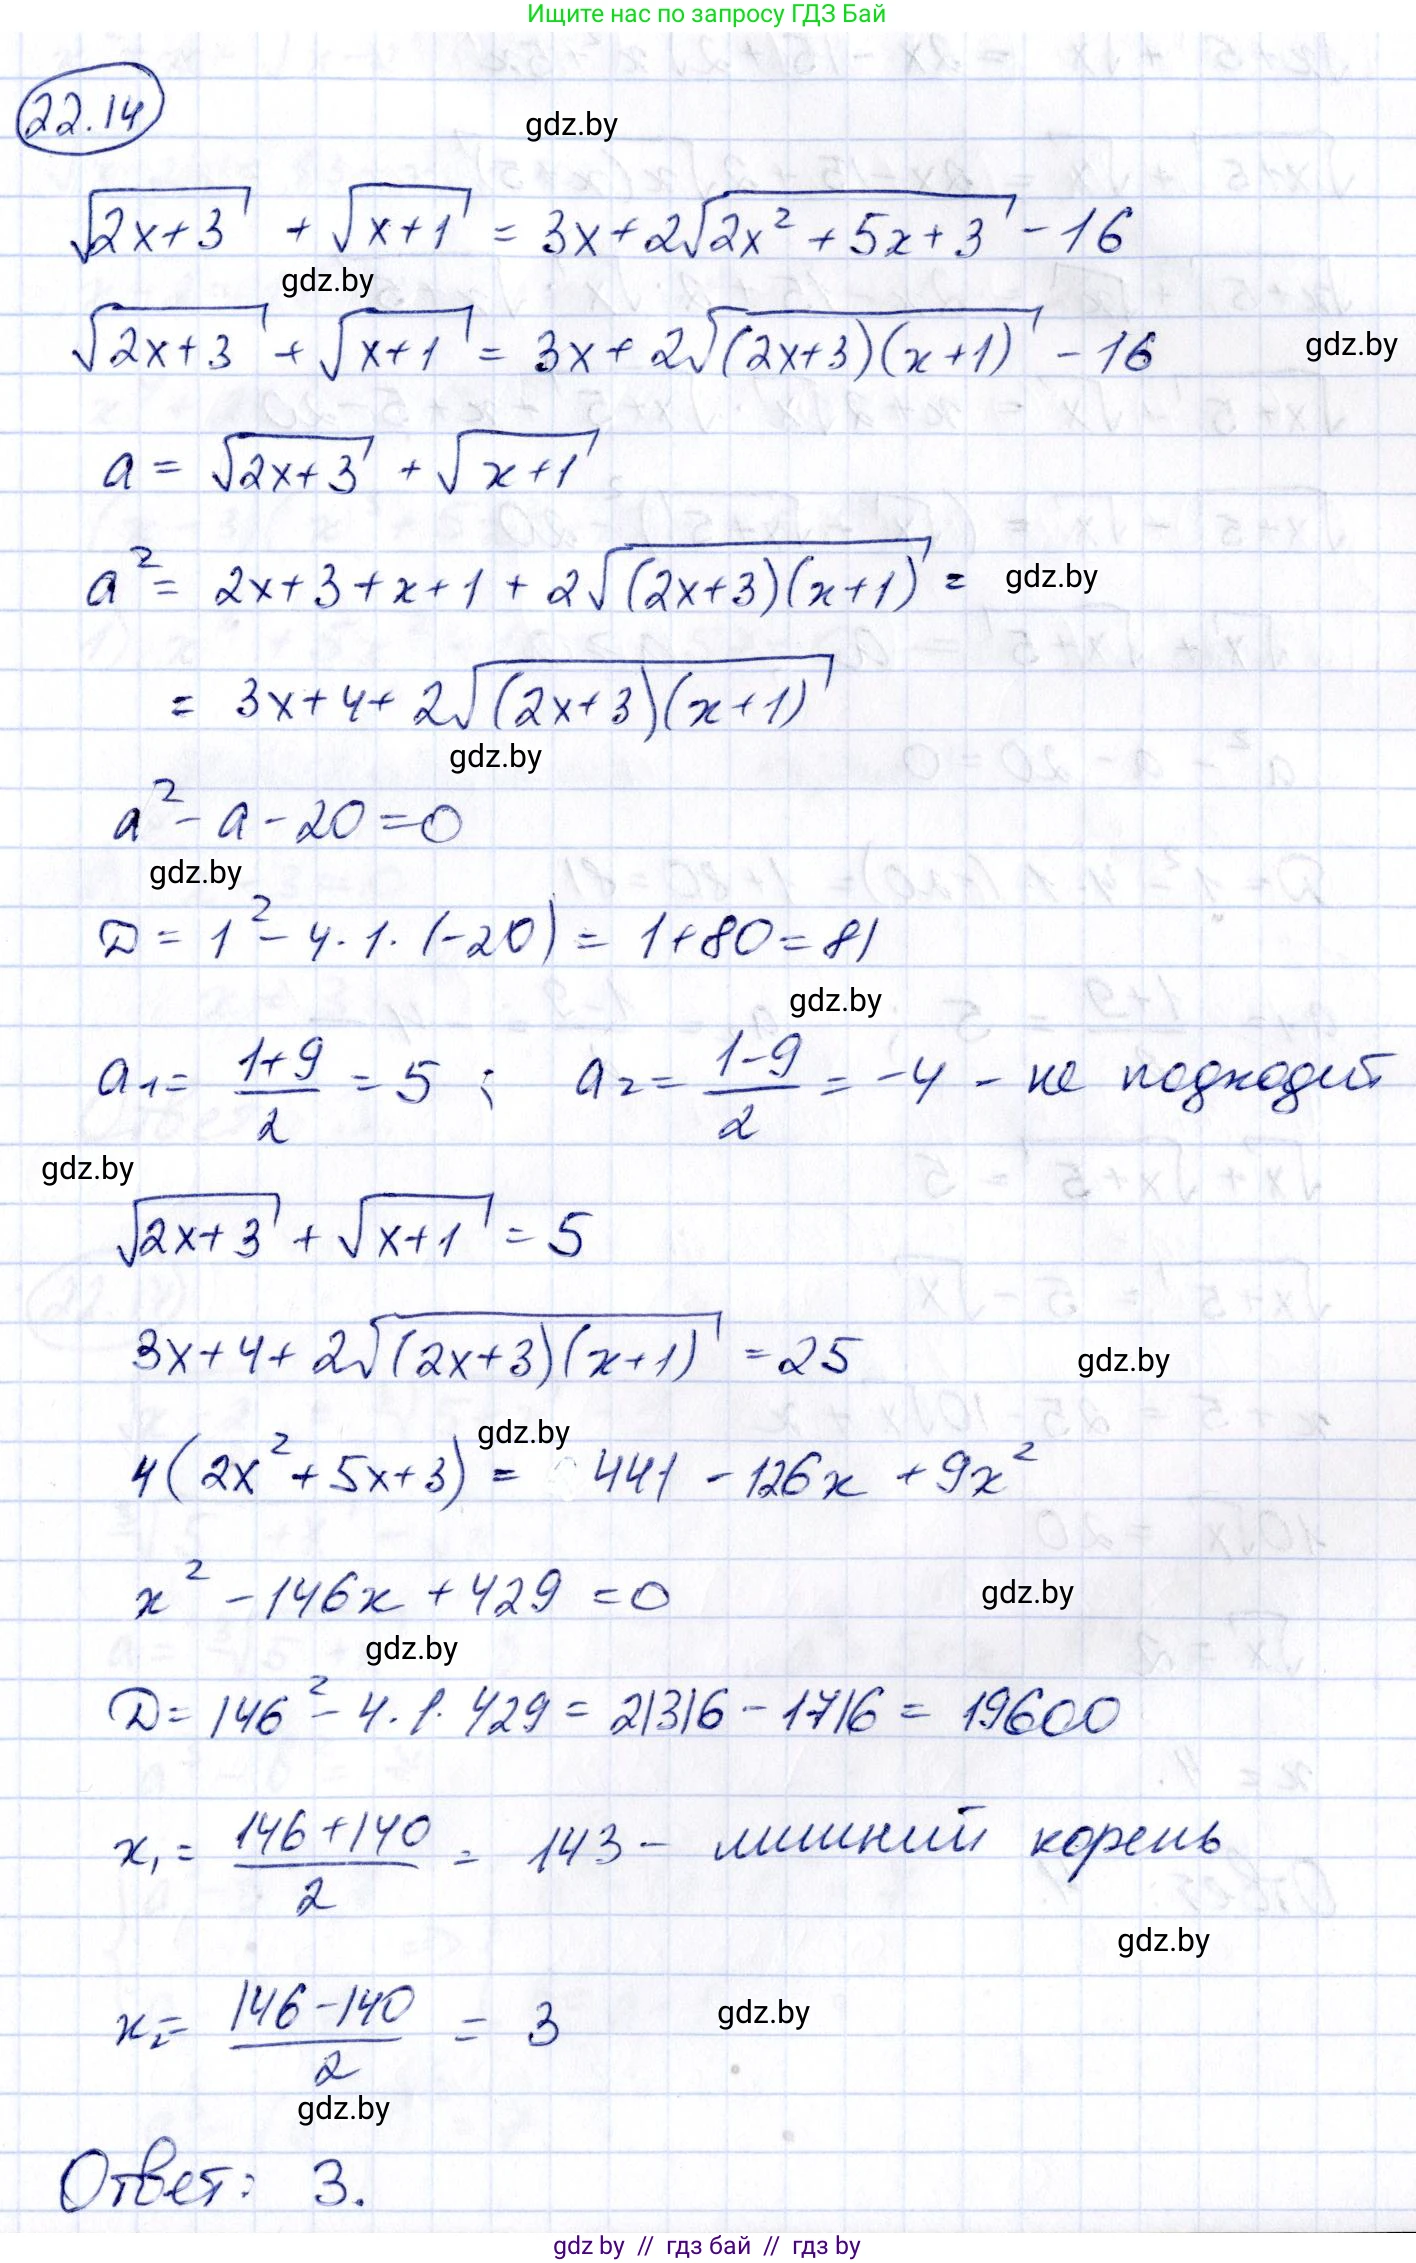 Ищите нас по запросу ГДЗ Бай
22.14
gdz.by
√(2x+3) + √(x+1) = 3x+2√(2x² + 5x+3) - 16
gdz.by
√(2x+3) + √(x+1) = 3x + 2√((2x+3)(x+1)) - 16
gdz.by
a = √(2x+3) + √(x+1)
a² = 2x+3+x+1 + 2√((2x+3)(x+1)) =
gdz.by
= 3x+4+ 2√((2x+3)(x+1))
gdz.by
a² - a - 20 = 0
gdz.by
D = 1² - 4·1·(-20) = 1+80 = 81
gdz.by
a₁ = (1+9)/2 = 5 ; a₂ = (1-9)/2 = -4 - не подходит
gdz.by
√(2x+3) + √(x+1) = 5
3x+4+ 2√((2x+3)(x+1)) = 25
gdz.by
gdz.by
4(2x² + 5x+3) = 441 - 126x + 9x²
x² - 146x + 429 = 0
gdz.by
gdz.by
D = 146² - 4·1·429 = 21316 - 1716 = 19600
x₁ = (146+140)/2 = 143 - лишний корень
gdz.by
x₂ = (146-140)/2 = 3
gdz.by
gdz.by
Ответ: 3.
gdz.by // гдз бай // гдз by